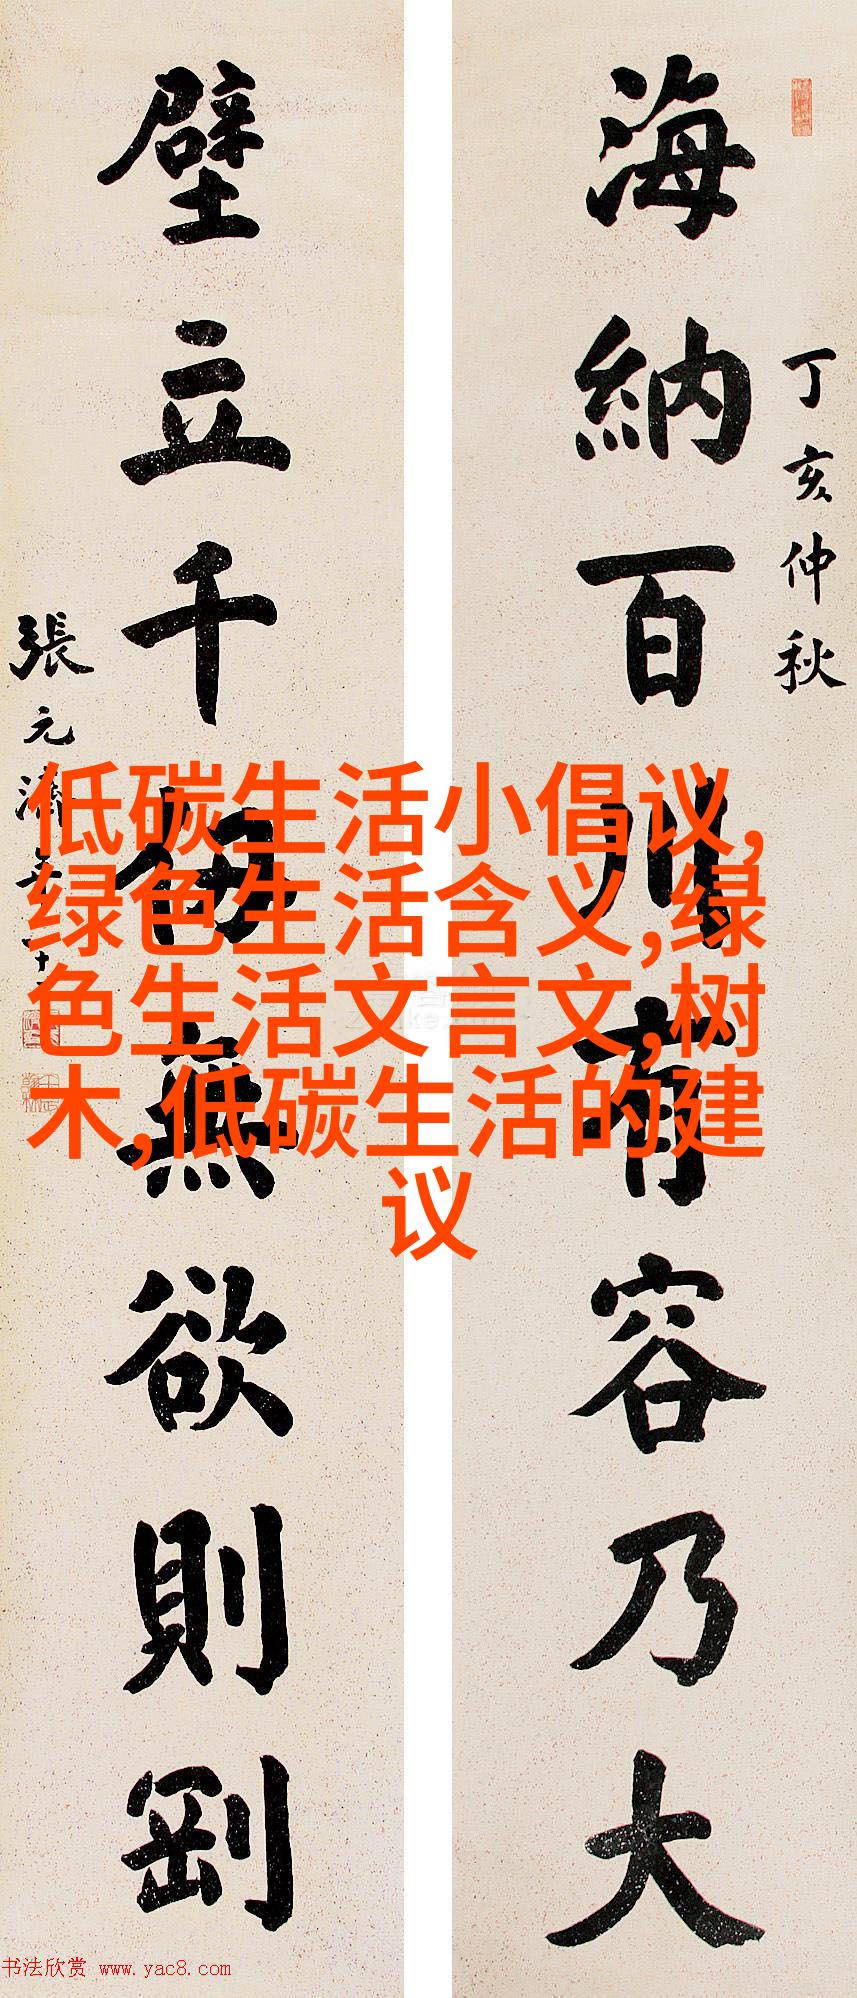 海納百川有容乃大
丁亥仲秋
壁立千仞無欲則剛
張元濟
低碳生活小倡议,
绿色生活含义,绿
色生活文言文,树
木,低碳生活的建
议
书法欣赏 www.yac8.com